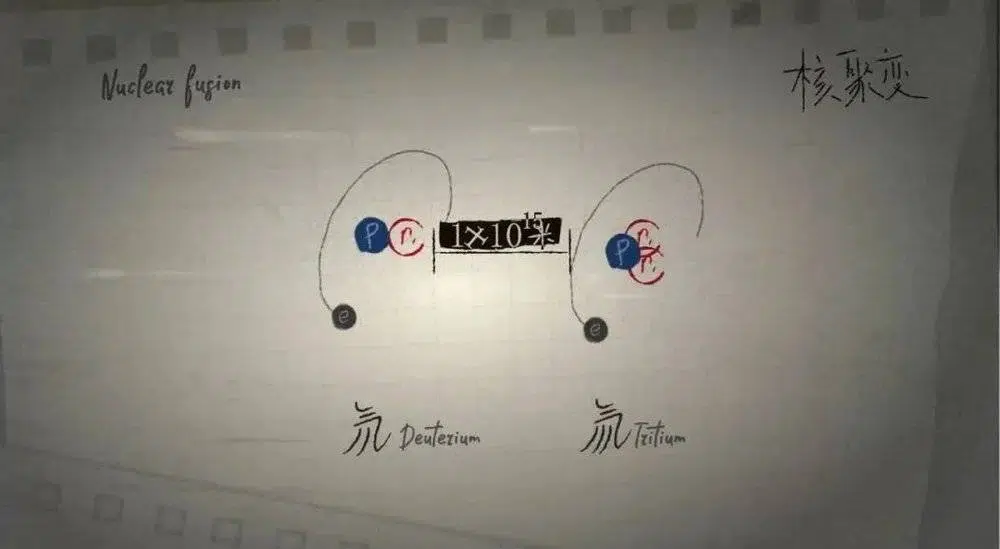 Nuclear fusion
核聚变
1×10¹⁵米
P n
P n
n
e
e
氘 Deuterium
氚 Tritium